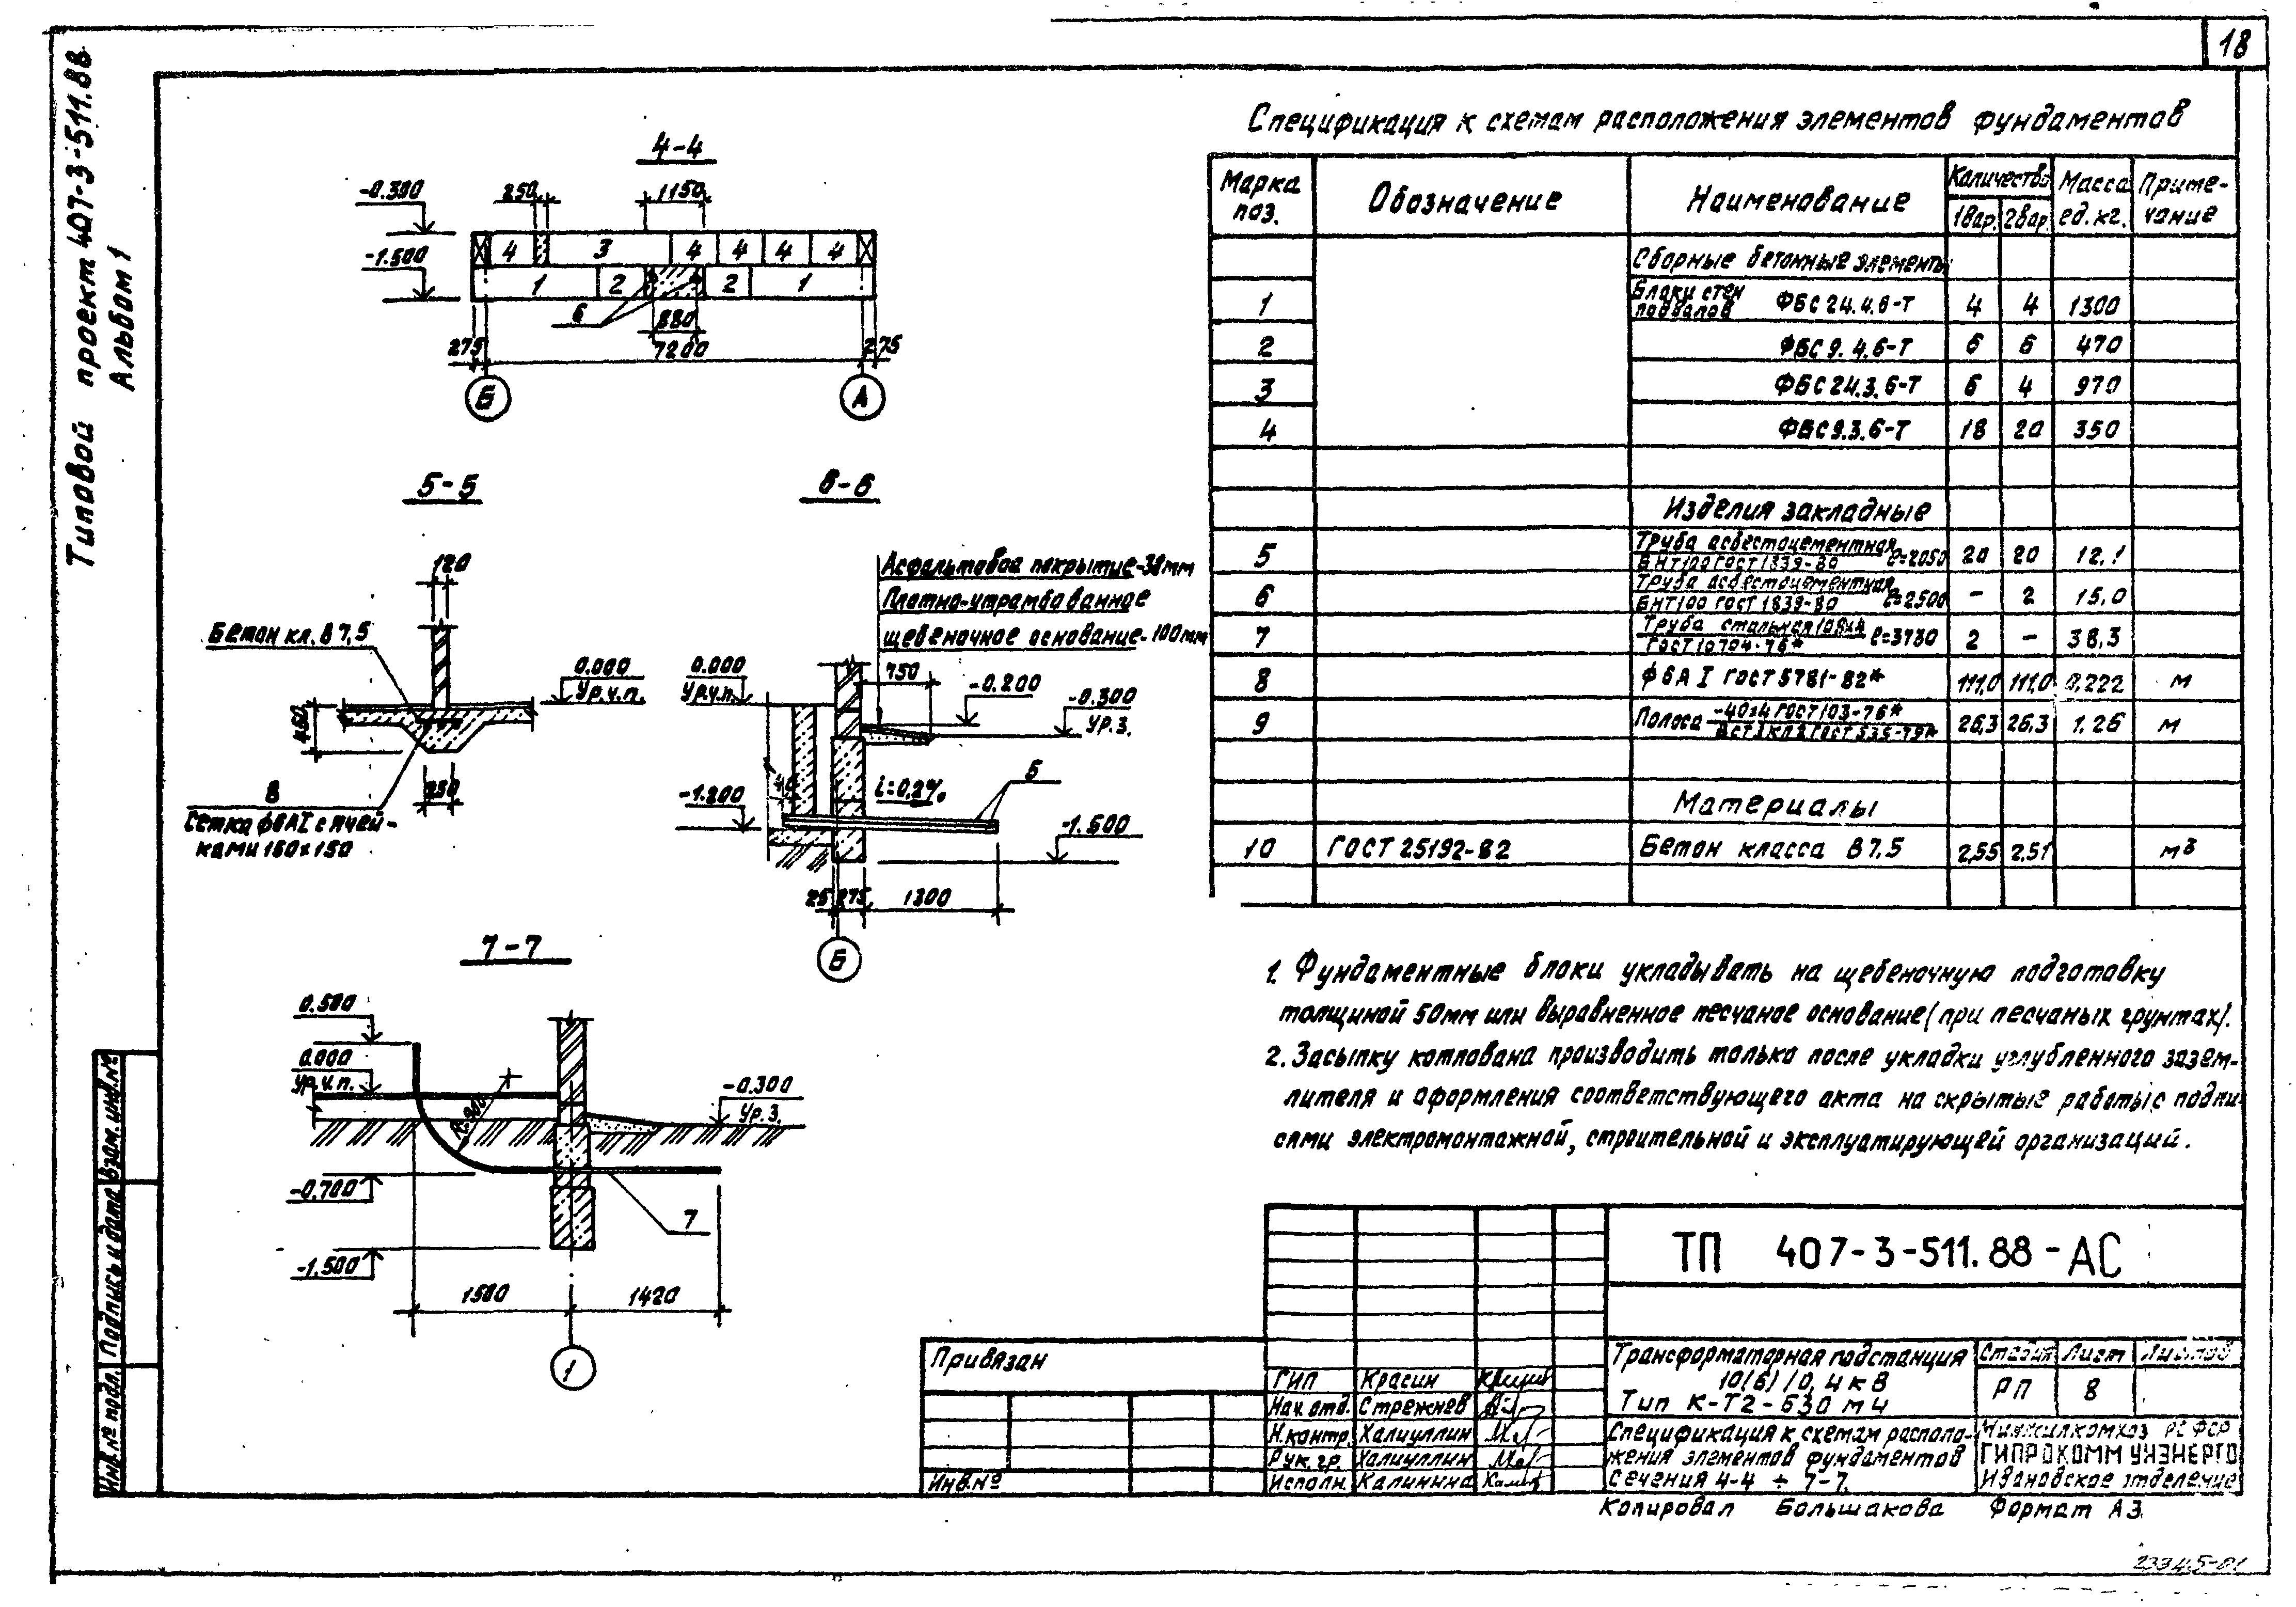 18
Типовой проект 407-3-511.88
Альбом 1
4-4
-0.300
250
1150
-1.500
4 3 4 4 4 4
1 2 2 1
6
880
275 7200 275
Б А
5-5
120
Бетон кл. В 7,5
0.000
Ур.ч.п.
460
250
8
Сетка ф6АI с ячей-
ками 150х150
6-6
Асфальтовое покрытие-30мм
Плотно-утрамбованное
щебеночное основание-100мм
0.000
Ур.ч.п.
750
-0.200
-0.300
Ур.з.
-1.200
i=0,2%
5
-1.500
25 275 1300
Б
7-7
0.500
0.000
Ур.ч.п.
R=900
-0.300
Ур.з.
-0.700
7
-1.500
1500 1420
1
Спецификация к схемам расположения элементов фундаментов
Марка поз. Обозначение Наименование Количество Масса ед.кг. Приме-чание
1вар. 2вар.
Сборные бетонные элементы
1 Блоки стен подвалов ФБС 24.4.6-Т 4 4 1300
2 ФБС 9.4.6-Т 6 6 470
3 ФБС 24.3.6-Т 6 4 970
4 ФБС 9.3.6-Т 18 20 350
Изделия закладные
5 Труба асбестоцементная БНТ100 ГОСТ 1839-80 ℓ=2050 20 20 12,1
6 Труба асбестоцементная БНТ100 ГОСТ 1839-80 ℓ=2500 - 2 15,0
7 Труба стальная 108х4 ГОСТ 10704-76* ℓ=3730 2 - 38,3
8 ф6А I ГОСТ 5781-82* 111,0 111,0 0,222 м
9 Полоса -40х4 ГОСТ 103-76* ВСт3кп2 ГОСТ 535-79* 26,3 26,3 1,26 м
Материалы
10 ГОСТ 25192-82 Бетон класса В7,5 2,55 2,51 м³
1. Фундаментные блоки укладывать на щебеночную подготовку
толщиной 50мм или выравненное песчаное основание (при песчаных грунтах).
2. Засыпку котлована производить только после укладки углубленного зазем-
лителя и оформления соответствующего акта на скрытые работы с подпи-
сями электромонтажной, строительной и эксплуатирующей организаций.
ТП 407-3-511.88-АС
Привязан
Инв.№
ГИП Красин
Нач. отд. Стрежнев
Н.контр. Халиуллин
Рук. гр. Халиуллин
Исполн. Калинина
Трансформаторная подстанция
10(6)/0,4 кВ
Тип К-Т2-630 м4
Стадия Лист Листов
РП 8
Спецификация к схемам располо-
жения элементов фундаментов
Сечения 4-4 ÷ 7-7.
Минжилкомхоз РСФСР
ГИПРОКОММУНЭНЕРГО
Ивановское отделение
Копировал Большакова Формат А3
23345-01
Инв.№ подл. Подпись и дата Взам. инв.№